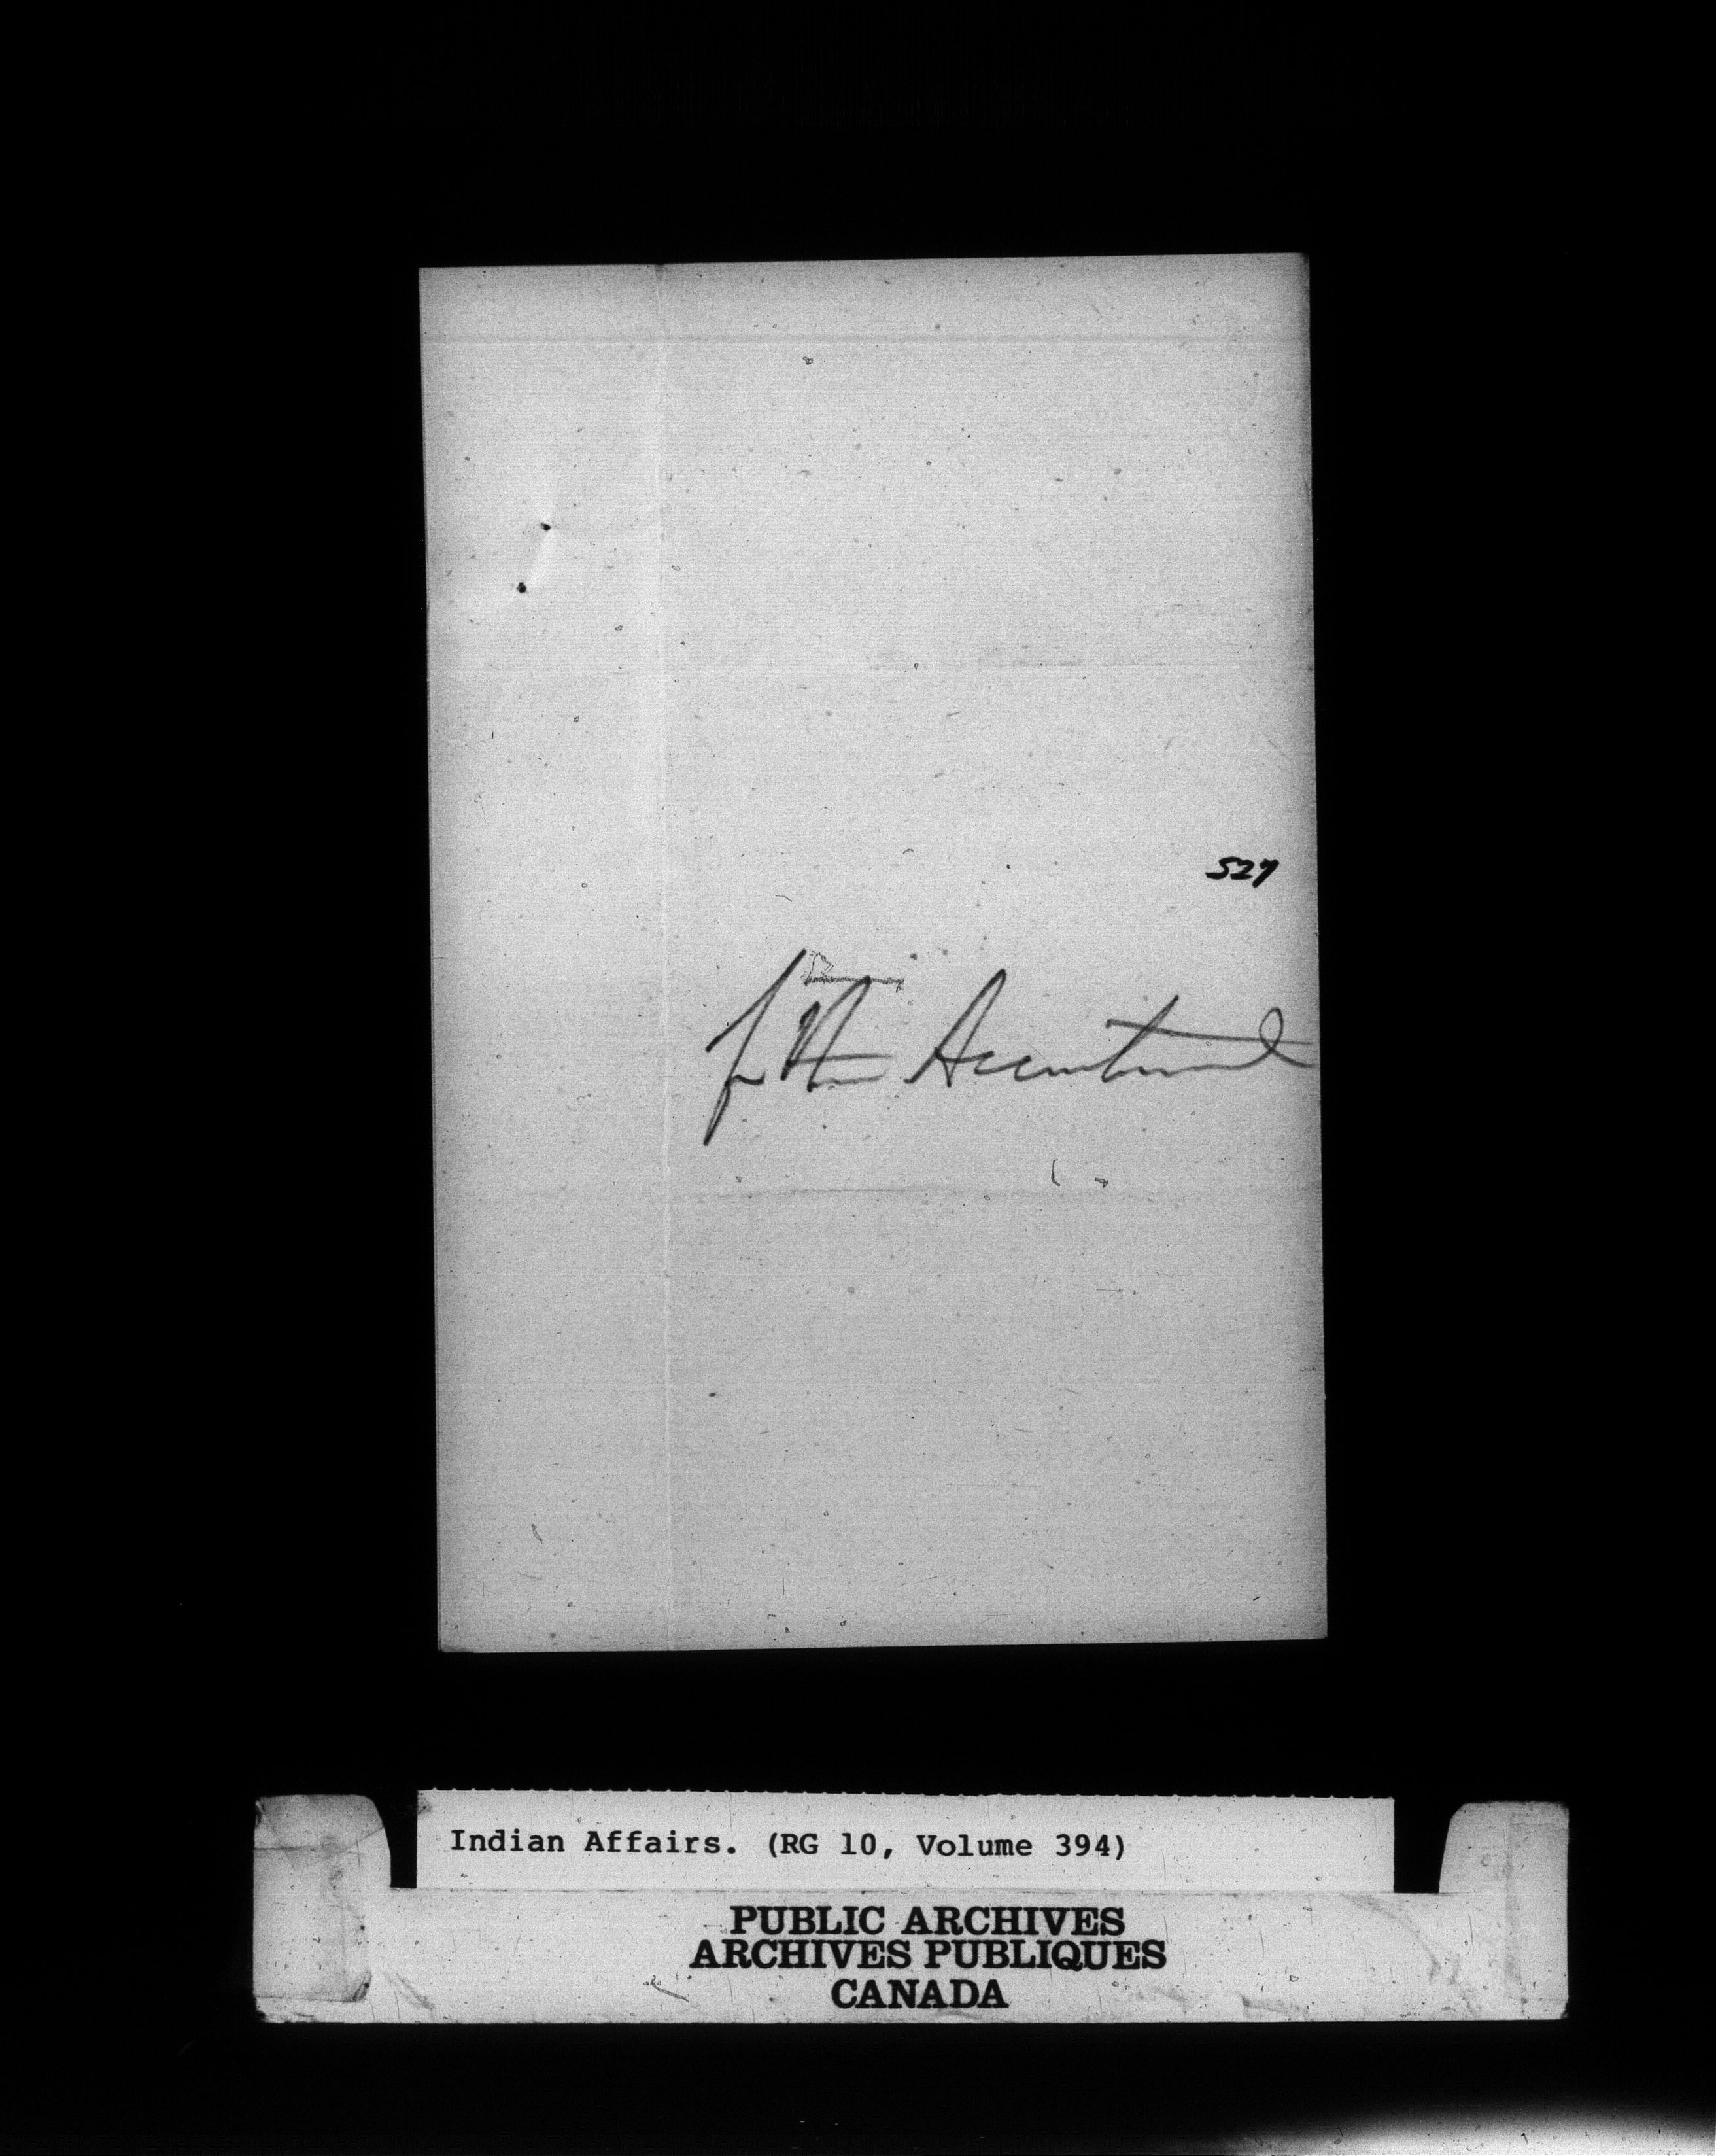 527
for the Accountant
Indian Affairs. (RG 10, Volume 394)
PUBLIC ARCHIVES
ARCHIVES PUBLIQUES
CANADA